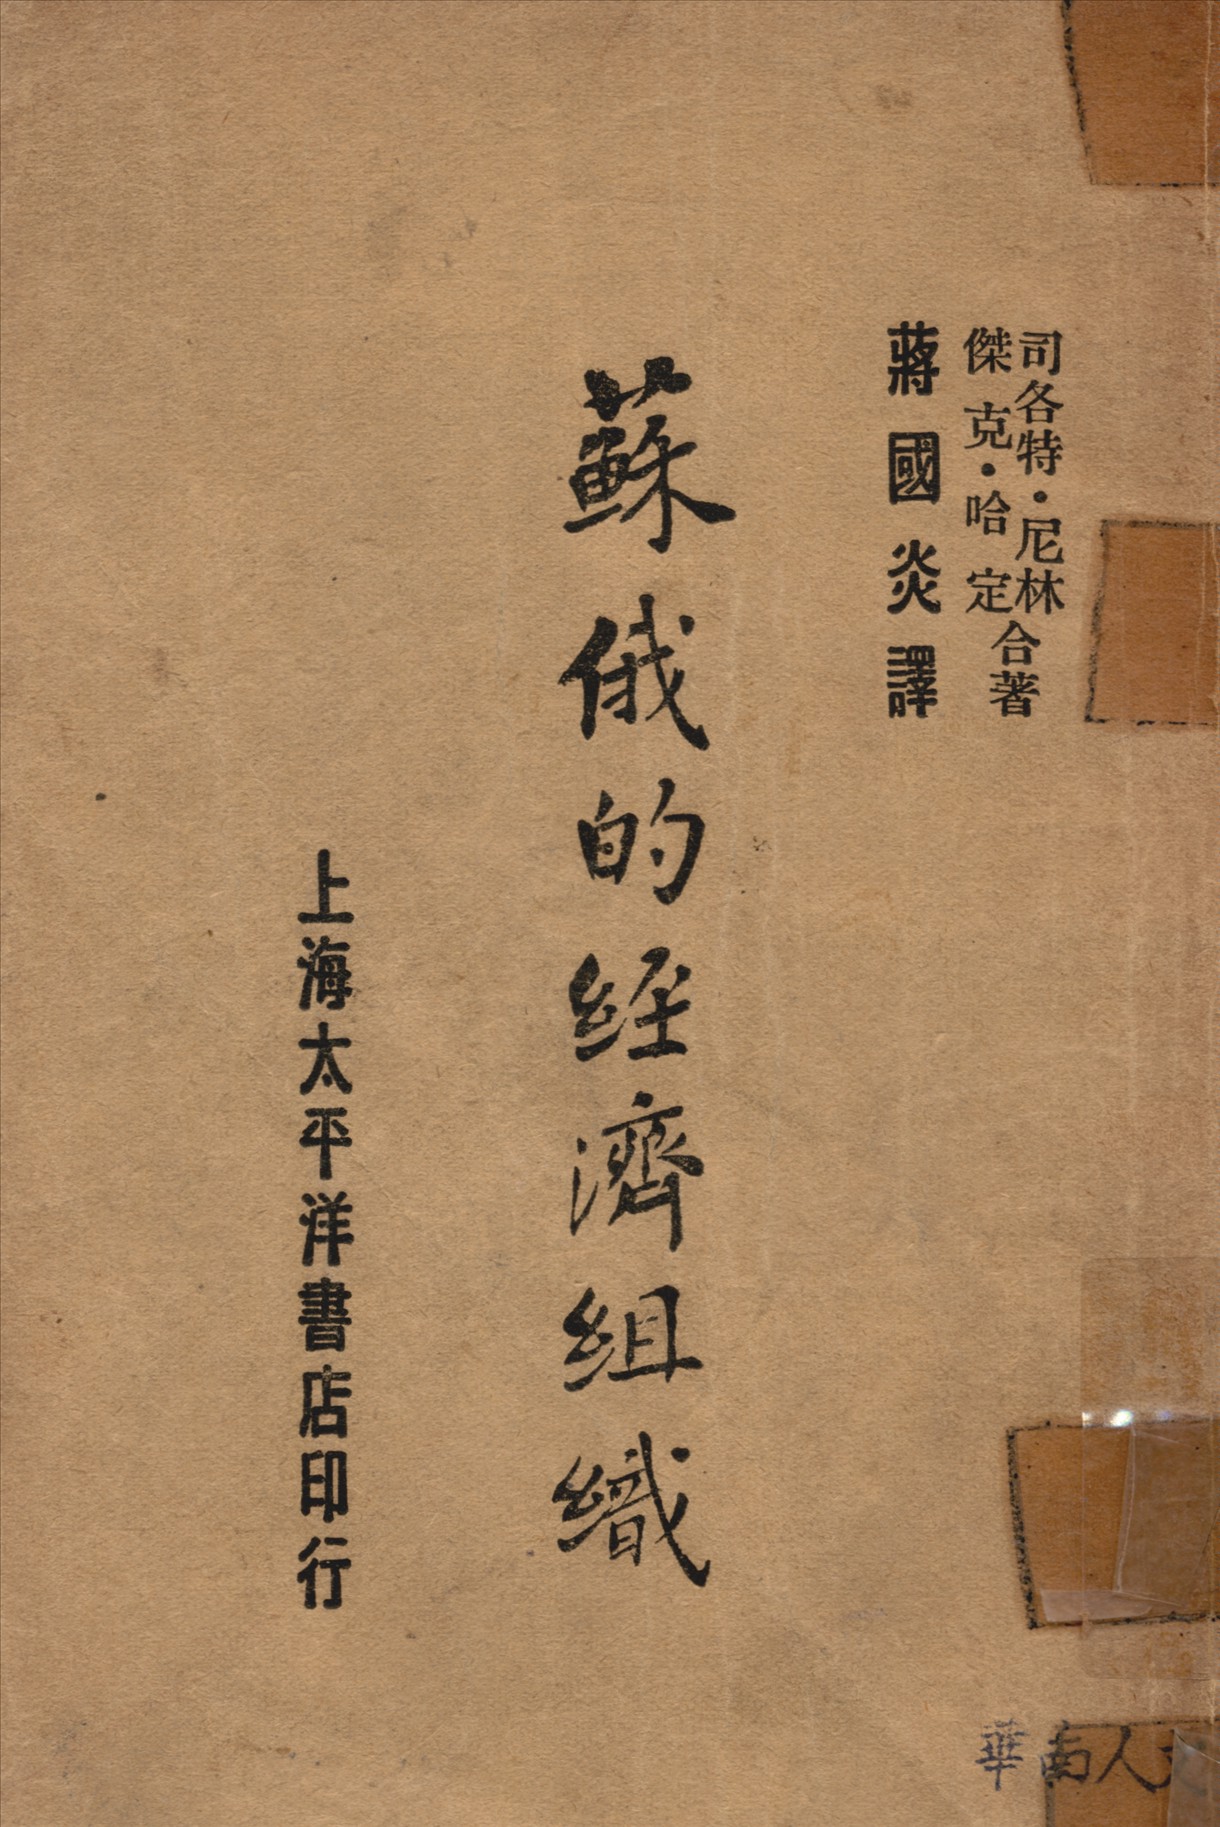 司各特・尼林
傑克・哈定
合著
蔣國炎譯
蘇俄的經濟組織
上海太平洋書店印行
華南人文